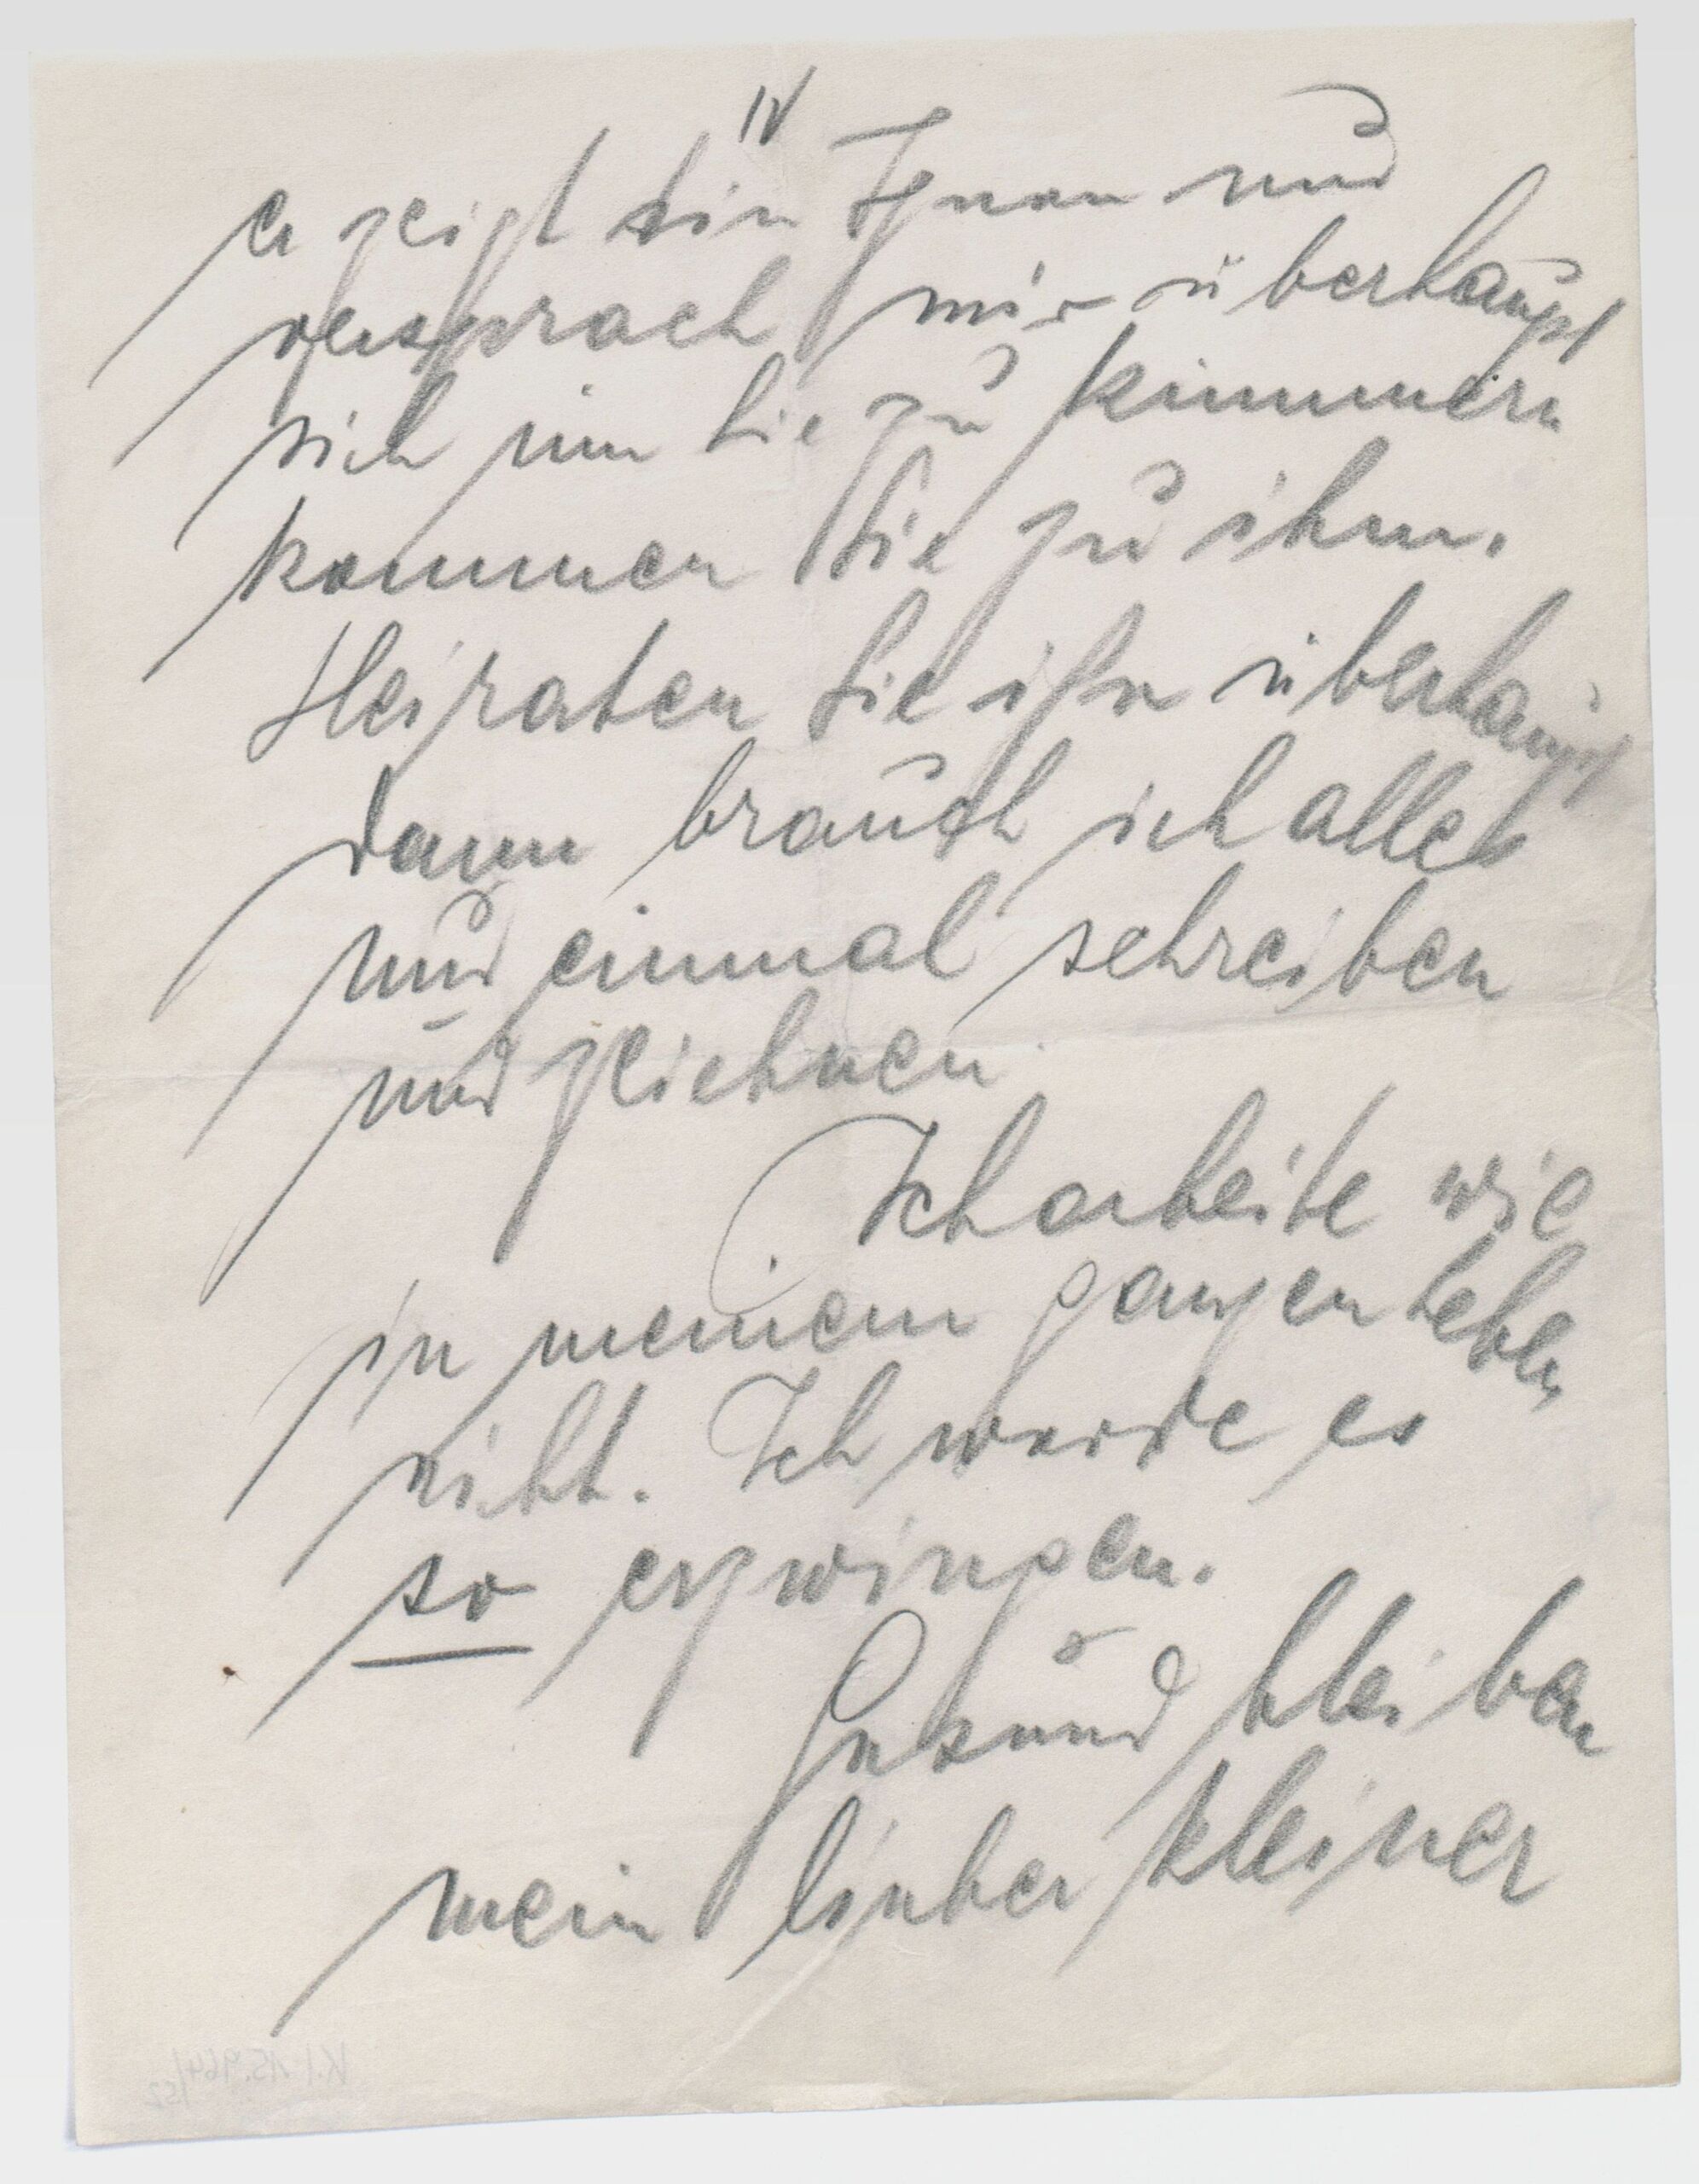 IV
er zeigt sin Ihnen und
versprach mir überhaupt
sich um Sie zu kümmern
kommen Sie zu ihm.
Heiraten Sie ihn überhaupt
dann brauch ich alles
nur einmal schreiben
und zeichnen.
Ich arbeite wie
in meinem ganzen Leben
nicht. Ich werde es
so erzwingen.
Gesund bleiben
mein lieber kleiner
K.I. 15.964/52